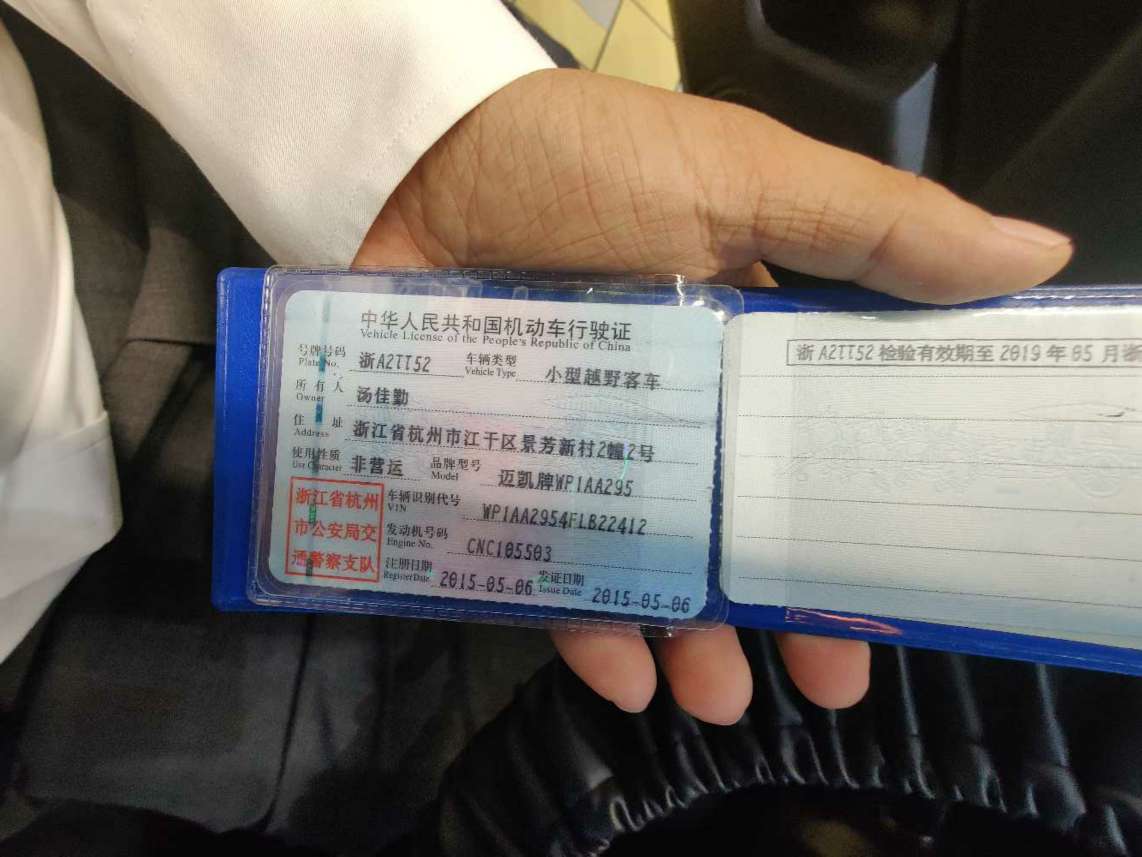 中华人民共和国机动车行驶证
Vehicle License of the People's Republic of China
号牌号码 浙A2TT52 车辆类型 小型越野客车
Plate No. Vehicle Type
所有人 汤佳勤
Owner
住址 浙江省杭州市江干区景芳新村2幢2号
Address
使用性质 非营运 品牌型号 迈凯牌WP1AA295
Use Character Model
浙江省杭州
市公安局交
通警察支队
车辆识别代号 WP1AA2954FLB22412
VIN
发动机号码 CNC105503
Engine No.
注册日期 2015-05-06 发证日期 2015-05-06
Register Date Issue Date
浙A2TT52 检验有效期至 2019年05月浙